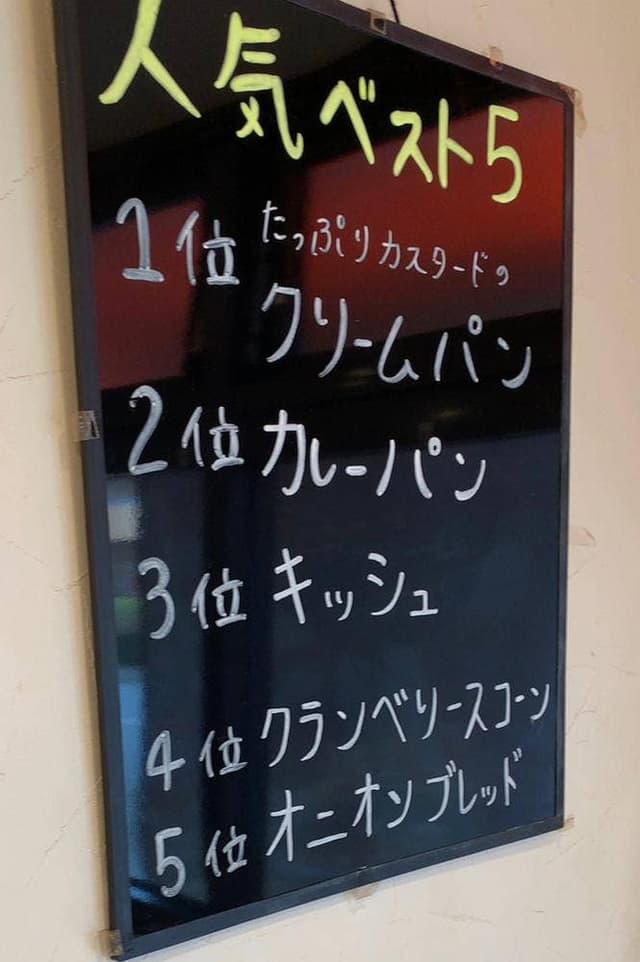 人気ベスト5
1位 たっぷりカスタードの
クリームパン
2位 カレーパン
3位 キッシュ
4位 クランベリースコーン
5位 オニオンブレッド